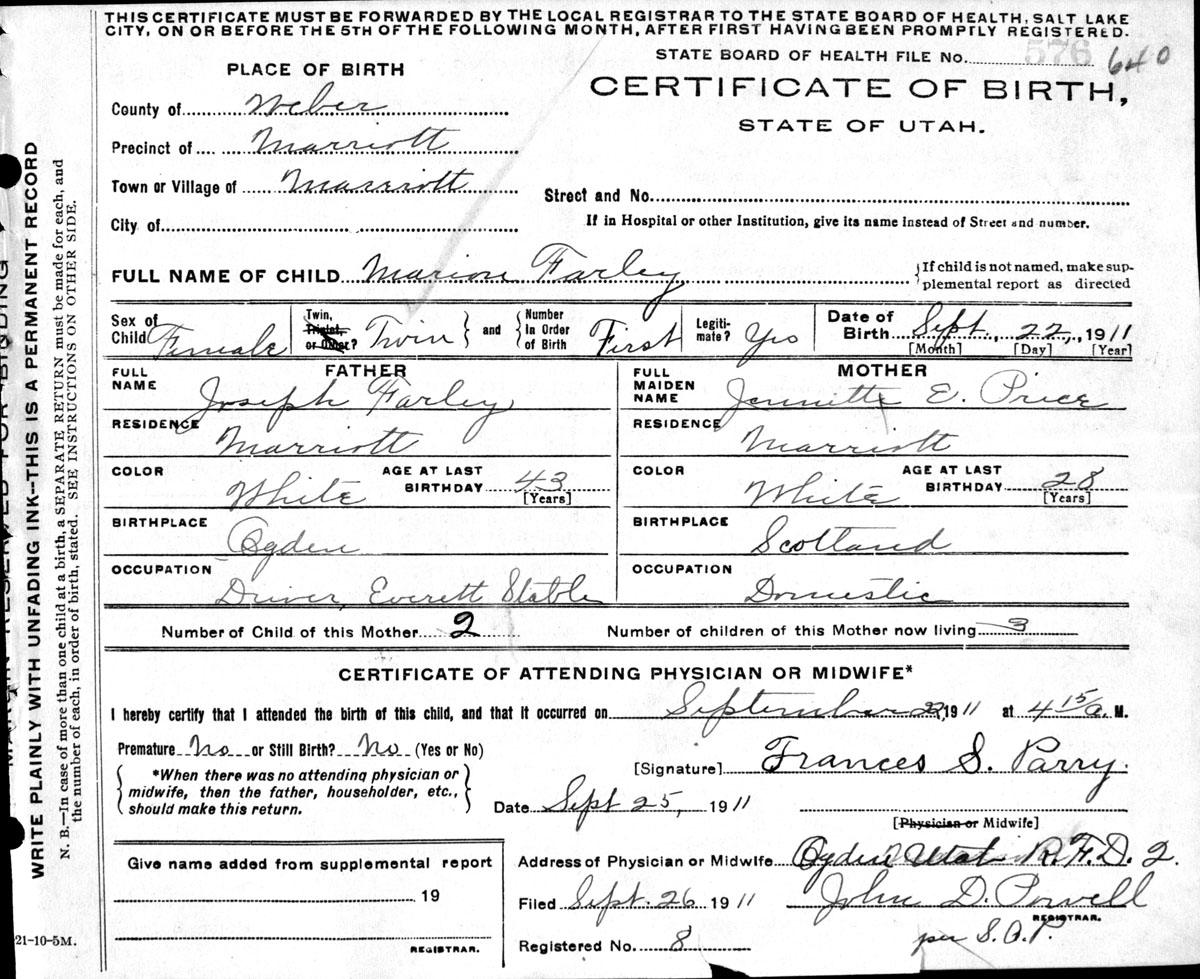 THIS CERTIFICATE MUST BE FORWARDED BY THE LOCAL REGISTRAR TO THE STATE BOARD OF HEALTH, SALT LAKE
CITY, ON OR BEFORE THE 5TH OF THE FOLLOWING MONTH, AFTER FIRST HAVING BEEN PROMPTLY REGISTERED.
STATE BOARD OF HEALTH FILE No. 576 640
PLACE OF BIRTH
CERTIFICATE OF BIRTH,
STATE OF UTAH.
County of Weber
Precinct of Marriott
Town or Village of Marriott
Street and No.
City of
If in Hospital or other Institution, give its name instead of Street and number.
FULL NAME OF CHILD Marion Farley
If child is not named, make sup-
plemental report as directed
Sex of Child Female
Twin, Triplet, or Other? Twin
and
Number In Order of Birth First
Legiti-mate? Yes
Date of Birth Sept. 22, 1911
[Month] [Day] [Year]
FATHER
FULL NAME Joseph Farley
RESIDENCE Marriott
COLOR White AGE AT LAST BIRTHDAY 43 [Years]
BIRTHPLACE Ogden
OCCUPATION Driver, Everett Stable
MOTHER
FULL MAIDEN NAME Jennette E. Price
RESIDENCE Marriott
COLOR White AGE AT LAST BIRTHDAY 28 [Years]
BIRTHPLACE Scotland
OCCUPATION Domestic
Number of Child of this Mother 2 Number of children of this Mother now living 3
CERTIFICATE OF ATTENDING PHYSICIAN OR MIDWIFE*
I hereby certify that I attended the birth of this child, and that it occurred on September 22, 1911 at 4 15 a. M.
Premature No or Still Birth? No (Yes or No)
*When there was no attending physician or
midwife, then the father, householder, etc.,
should make this return.
[Signature] Frances S. Parry.
Date Sept 25, 1911
[Physician or Midwife]
Give name added from supplemental report
19
REGISTRAR.
Address of Physician or Midwife Ogden Utah R.F.D. 2.
Filed Sept. 26 1911 John D. Powell
REGISTRAR.
Registered No. 8 per S.A.P.
21-10-5M.
MARGIN RESERVED FOR BINDING
WRITE PLAINLY WITH UNFADING INK--THIS IS A PERMANENT RECORD
N. B.—In case of more than one child at a birth, a SEPARATE RETURN must be made for each, and
the number of each, in order of birth, stated. SEE INSTRUCTIONS ON OTHER SIDE.